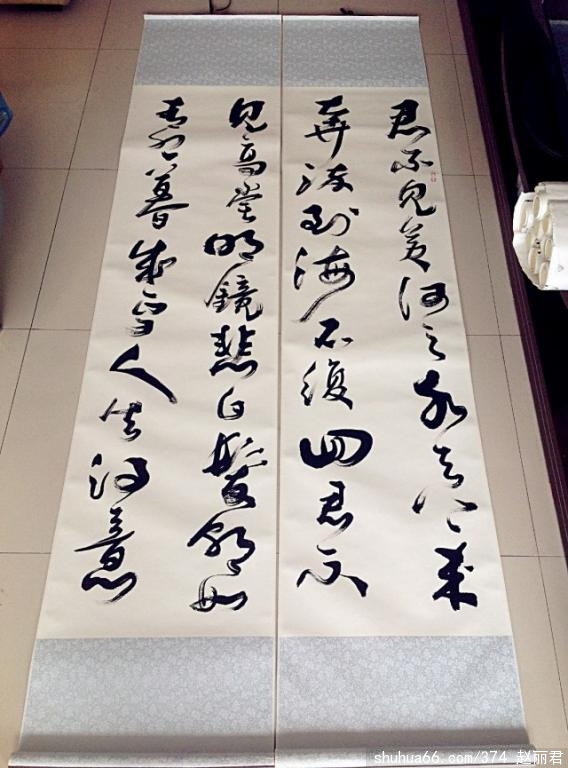 君不見黃河之水天上來
奔流到海不復回君不
見高堂明鏡悲白髮朝如
青絲暮成雪人生得意
shuhua66.com/374 赵丽君